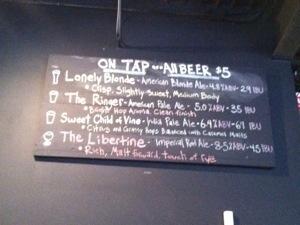 ON TAP ALL BEER $5
Lonely Blonde - American Blonde Ale - 4.8% ABV - 29 IBU
* Crisp, Slightly Sweet, Medium Body
The Ringer - American Pale Ale - 5.0% ABV - 35 IBU
* Bright Hop Aroma, Clean finish
Sweet Child of Vine - India Pale Ale - 6.9% ABV - 67 IBU
* Citrus and Grassy Hops Balanced with Caramel Malts
The Libertine - Imperial Red Ale - 8.5% ABV - 45 IBU
* Rich, Malt forward, touch of Rye